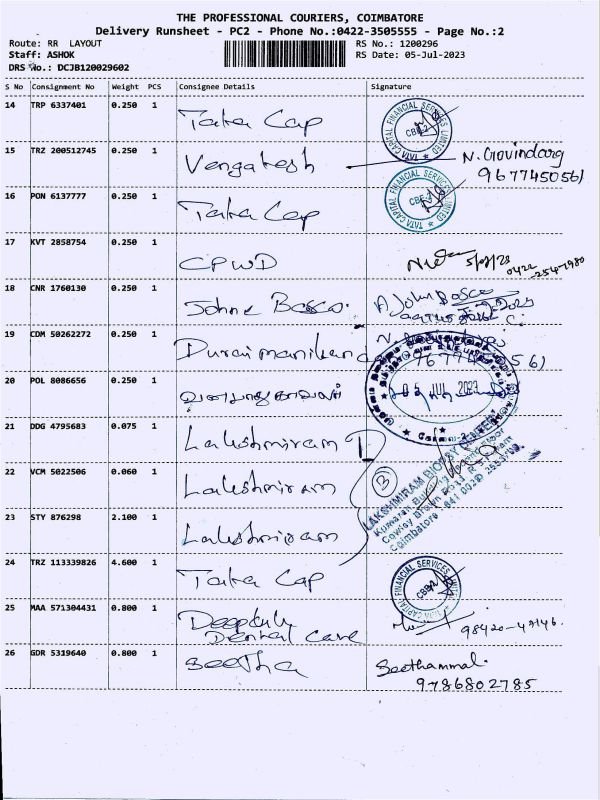 THE PROFESSIONAL COURIERS, COIMBATORE
Delivery Runsheet - PC2 - Phone No.:0422-3505555 - Page No.:2
Route: RR LAYOUT RS No.: 1200296
Staff: ASHOK RS Date: 05-Jul-2023
DRS No.: DCJB120029602
S No Consignment No Weight PCS Consignee Details Signature
14 TRP 6337401 0.250 1 Tata Cap TATA CAPITAL FINANCIAL SERVICES LIMITED CBE-2
15 TRZ 200512745 0.250 1 Vengatesh N. Govindaraj
9677450561
16 PON 6137777 0.250 1 Tata Cap TATA CAPITAL FINANCIAL SERVICES LIMITED CBE-2
17 KVT 2858754 0.250 1 CPWD
0422
18 CNR 1760130 0.250 1 Johne Bosco. A John Bosco
19 CDM 50262272 0.250 1 Duraimanikan
20 POL 8086656 0.250 1 05 JUL 2023
21 DDG 4795683 0.075 1 Lakshmiram
22 VCM 5022506 0.060 1 Lakshmiram 3 LAKSHMIRAM
23 STY 876298 2.100 1 Lakshmiram Coimbatore
24 TRZ 113339826 4.600 1 Tata Cap TATA CAPITAL FINANCIAL SERVICES LIMITED CBE-2
25 MAA 571304431 0.800 1
Dental Care 98420-
26 GDR 5319640 0.800 1 Seetha Seethammal.
9786802785